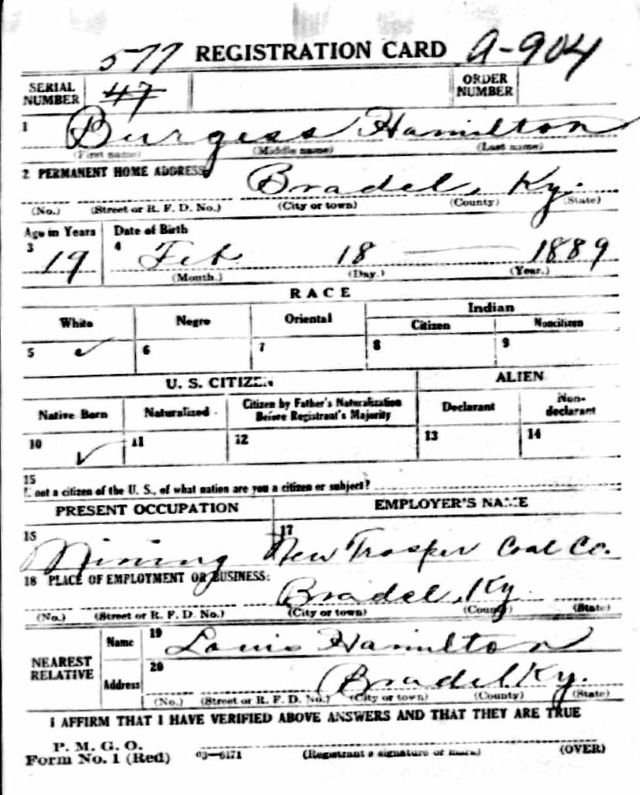 577 REGISTRATION CARD A-904
SERIAL NUMBER 47 ORDER NUMBER
1 Burgess Hamilton
(First name) (Middle name) (Last name)
2 PERMANENT HOME ADDRESS: Bradel, Ky.
(No.) (Street or R. F. D. No.) (City or town) (County) (State)
Age in Years Date of Birth
3 19 4 Feb 18 1889
(Month.) (Day.) (Year.)
RACE
White Negro Oriental Indian
Citizen Noncitizen
5 ✓ 6 7 8 9
U. S. CITIZEN ALIEN
Native Born Naturalized Citizen by Father's Naturalization Before Registrant's Majority Declarant Non-declarant
10 ✓ 11 12 13 14
15
not a citizen of the U. S., of what nation are you a citizen or subject?
PRESENT OCCUPATION EMPLOYER'S NAME
16 Mining 17 New Trosper Coal Co.
18 PLACE OF EMPLOYMENT OR BUSINESS:
Bradel, Ky
(No.) (Street or R. F. D. No.) (City or town) (County) (State)
NEAREST RELATIVE Name 19 Louis Hamilton
Address 20 Bradel Ky.
(No.) (Street or R. F. D. No.) (City or town) (County) (State)
I AFFIRM THAT I HAVE VERIFIED ABOVE ANSWERS AND THAT THEY ARE TRUE
P. M. G. O.
Form No. 1 (Red) 03-6171 (Registrant's signature or mark) (OVER)